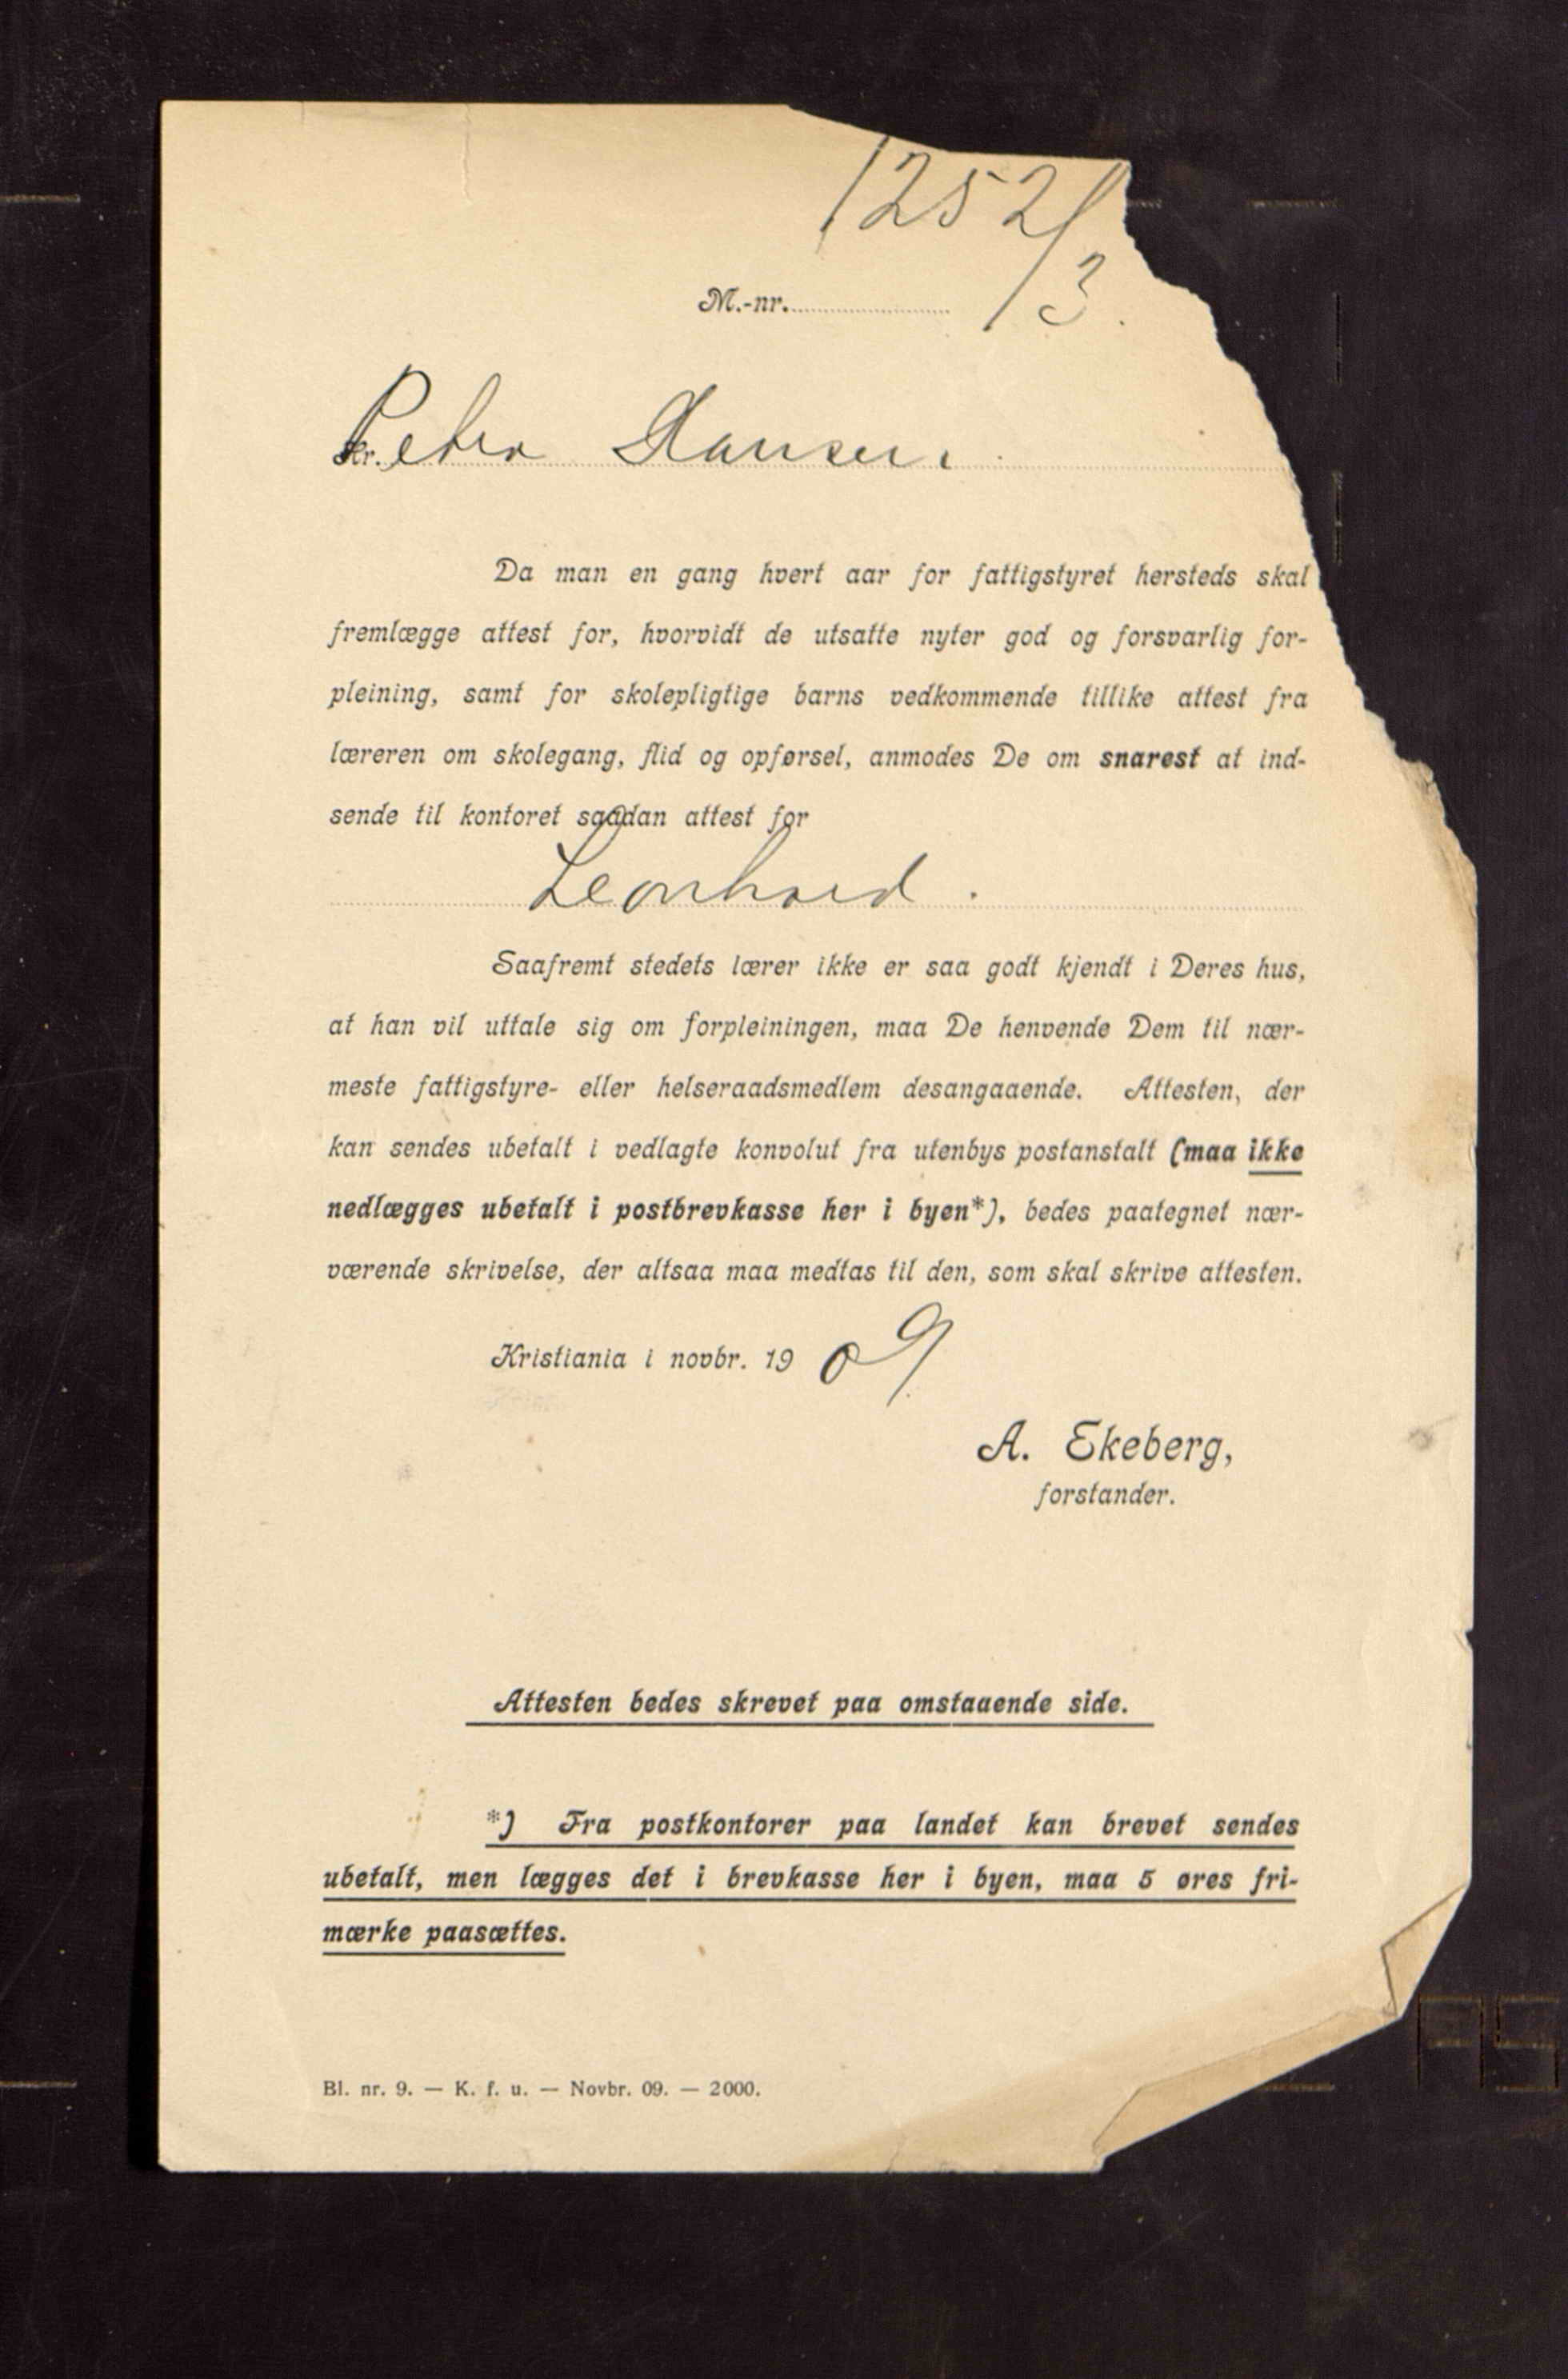 1252/3.
M.-nr.
Hr. Petra Hansen.
Da man en gang hvert aar for fattigstyret hersteds skal
fremlægge attest for, hvorvidt de utsatte nyter god og forsvarlig for-
pleining, samt for skolepligtige barns vedkommende tillike attest fra
læreren om skolegang, flid og opførsel, anmodes De om snarest at ind-
sende til kontoret saadan attest for
Leonhard.
Saafremt stedets lærer ikke er saa godt kjendt i Deres hus,
at han vil uttale sig om forpleiningen, maa De henvende Dem til nær-
meste fattigstyre- eller helseraadsmedlem desangaaende. Attesten, der
kan sendes ubetalt i vedlagte konvolut fra utenbys postanstalt (maa ikke
nedlægges ubetalt i postbrevkasse her i byen*), bedes paategnet nær-
værende skrivelse, der altsaa maa medtas til den, som skal skrive attesten.
Kristiania i novbr. 1909
A. Ekeberg,
forstander.
Attesten bedes skrevet paa omstaaende side.
*) Fra postkontorer paa landet kan brevet sendes
ubetalt, men lægges det i brevkasse her i byen, maa 5 øres fri-
mærke paasættes.
Bl. nr. 9. — K. f. u. — Novbr. 09. — 2000.